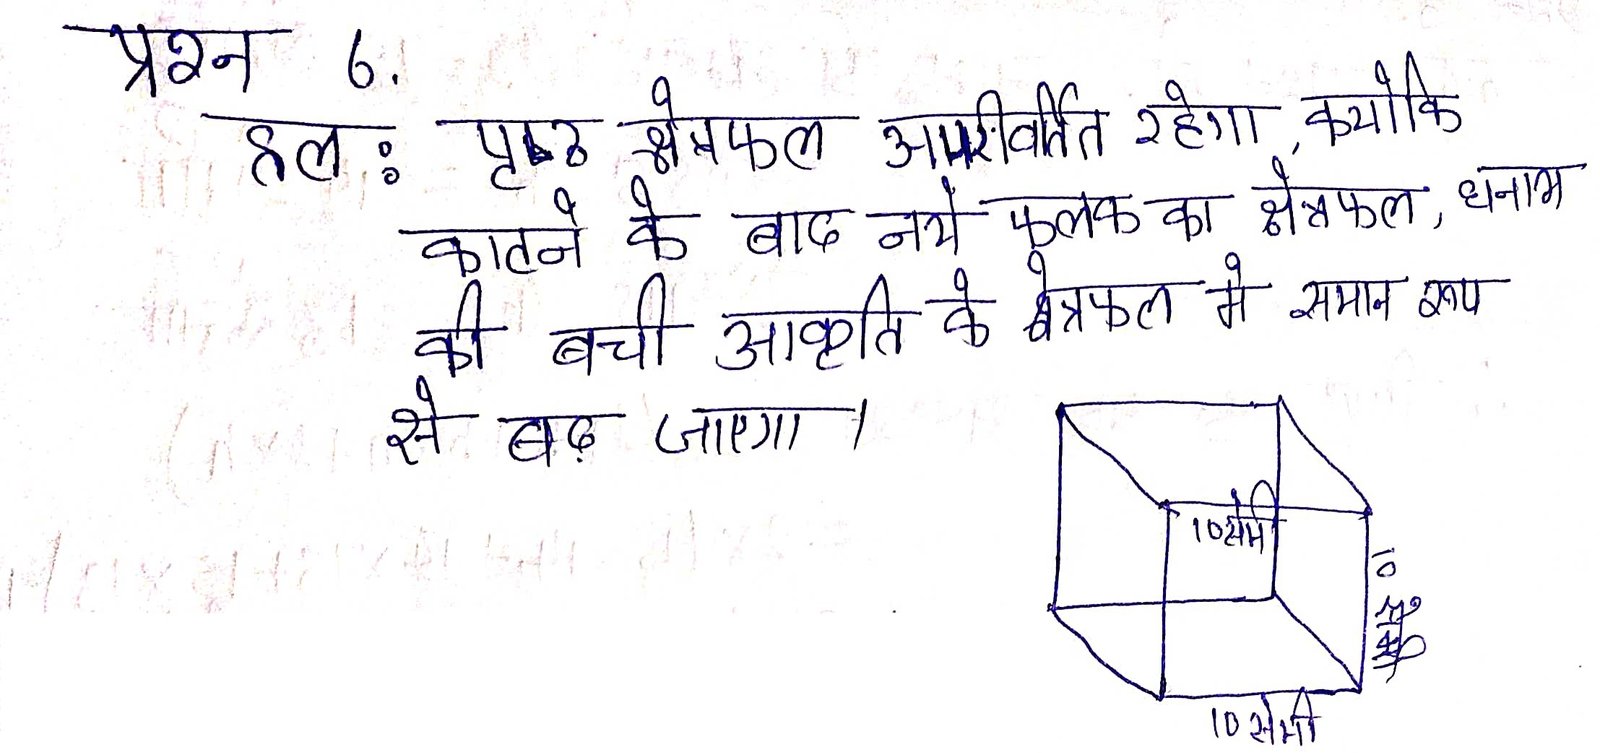 प्रश्न 6.
हल : पृष्ठ क्षेत्रफल अपरीवर्तित रहेगा, क्योकि
काटने के बाद नये फलक का क्षेत्रफल, घनाभ
की बची आकृति के क्षेत्रफल मे समान रूप
से बढ़ जाएगा।
10सेमी
10 सेमी
10 सेमी